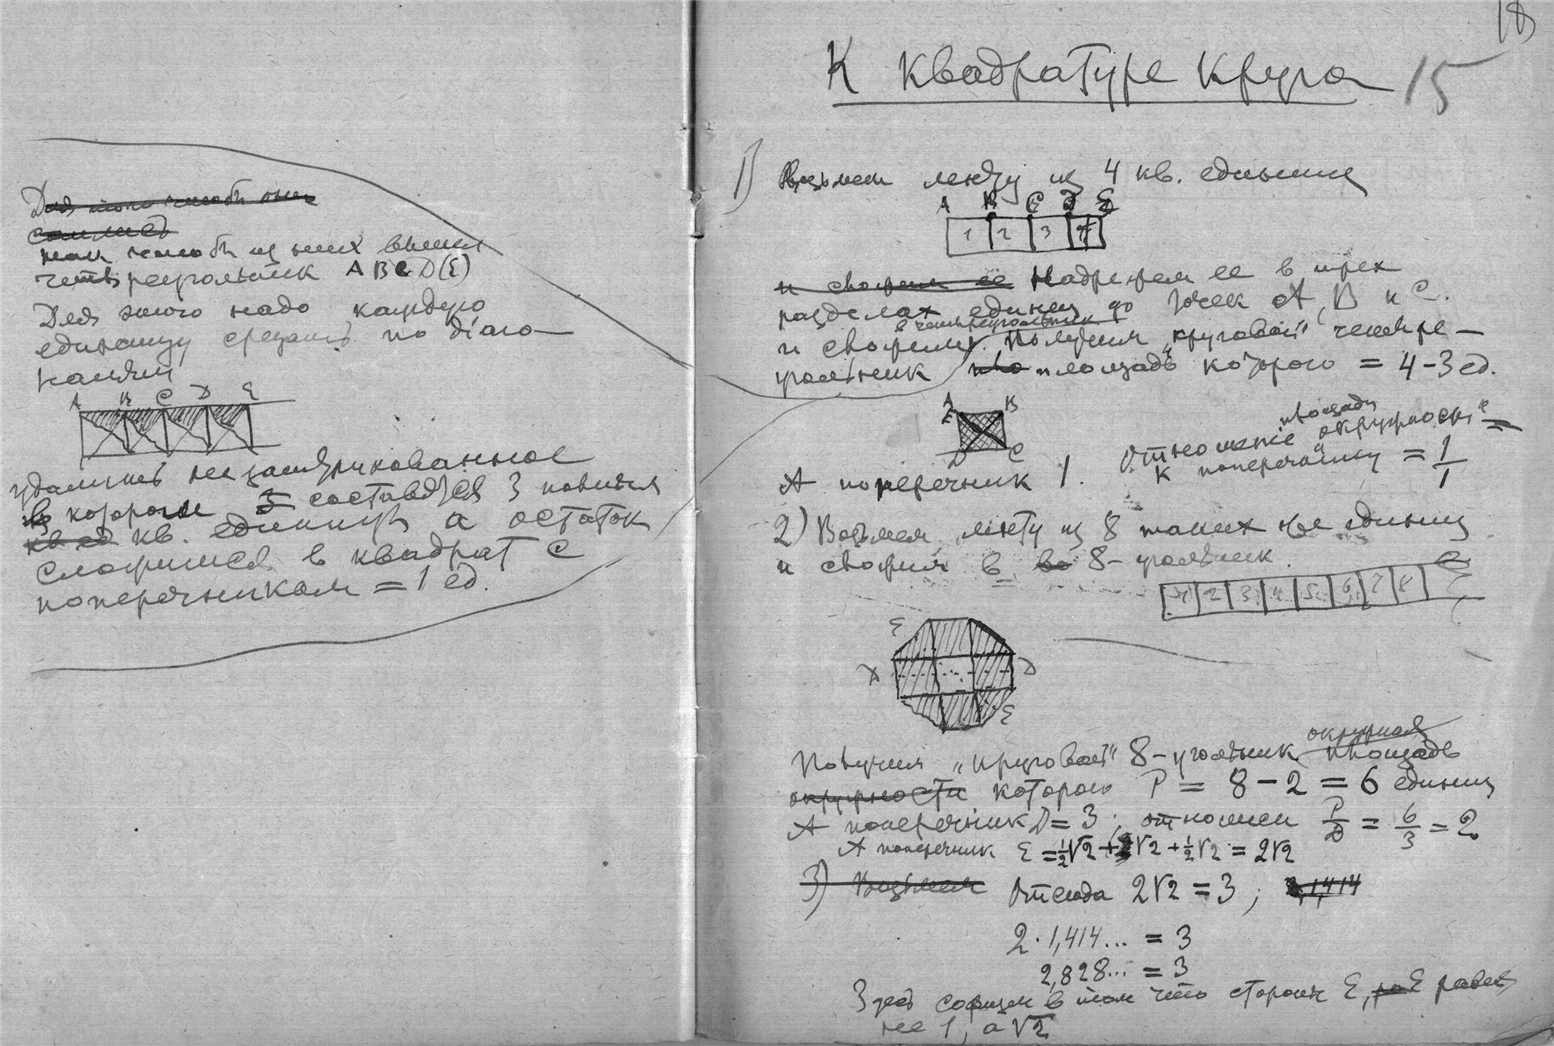 так чтобы из них вышел
четыреугольник ABCD(E)
Для этого надо каждую
единицу срезать по діаго-
налям
A B C D E
удалить незаштрихованное
которого составляется 3 новых
кв. единицы а остаток
сложится в квадрат с
поперечником = 1 ед.
18
К квадратуре круга 15
1) Возьмем ленту из 4 кв. единиц
A B C D E
1 2 3 4
и свожим ее Надрежем ее в трех
разделах единиц до точек A, B и C.
в четыреугольник
и свожим. Получим „круговой" четыре-
угольник площадь которого = 4-3 ед.
A B
E
D C
А поперечник 1.
Отношение площади „окружности" =
к поперечнику = 1/1
2) Возьмем ленту из 8 таких же единиц
и свожим в 8-угольник.
1 2 3 4 5 6 7 8
E
D
E
Получим „круговой" 8-угольник окружная площадь
окружности которого P = 8-2 = 6 единиц
А поперечник D = 3; отношен P/D = 6/3 = 2
А поперечник E = ½√2 + √2 + ½√2 = 2√2
3) Возьмем Отсюда 2√2 = 3; 1,414
2·1,414... = 3
2,828... = 3
в том что сторона E, равна
не 1, а √2